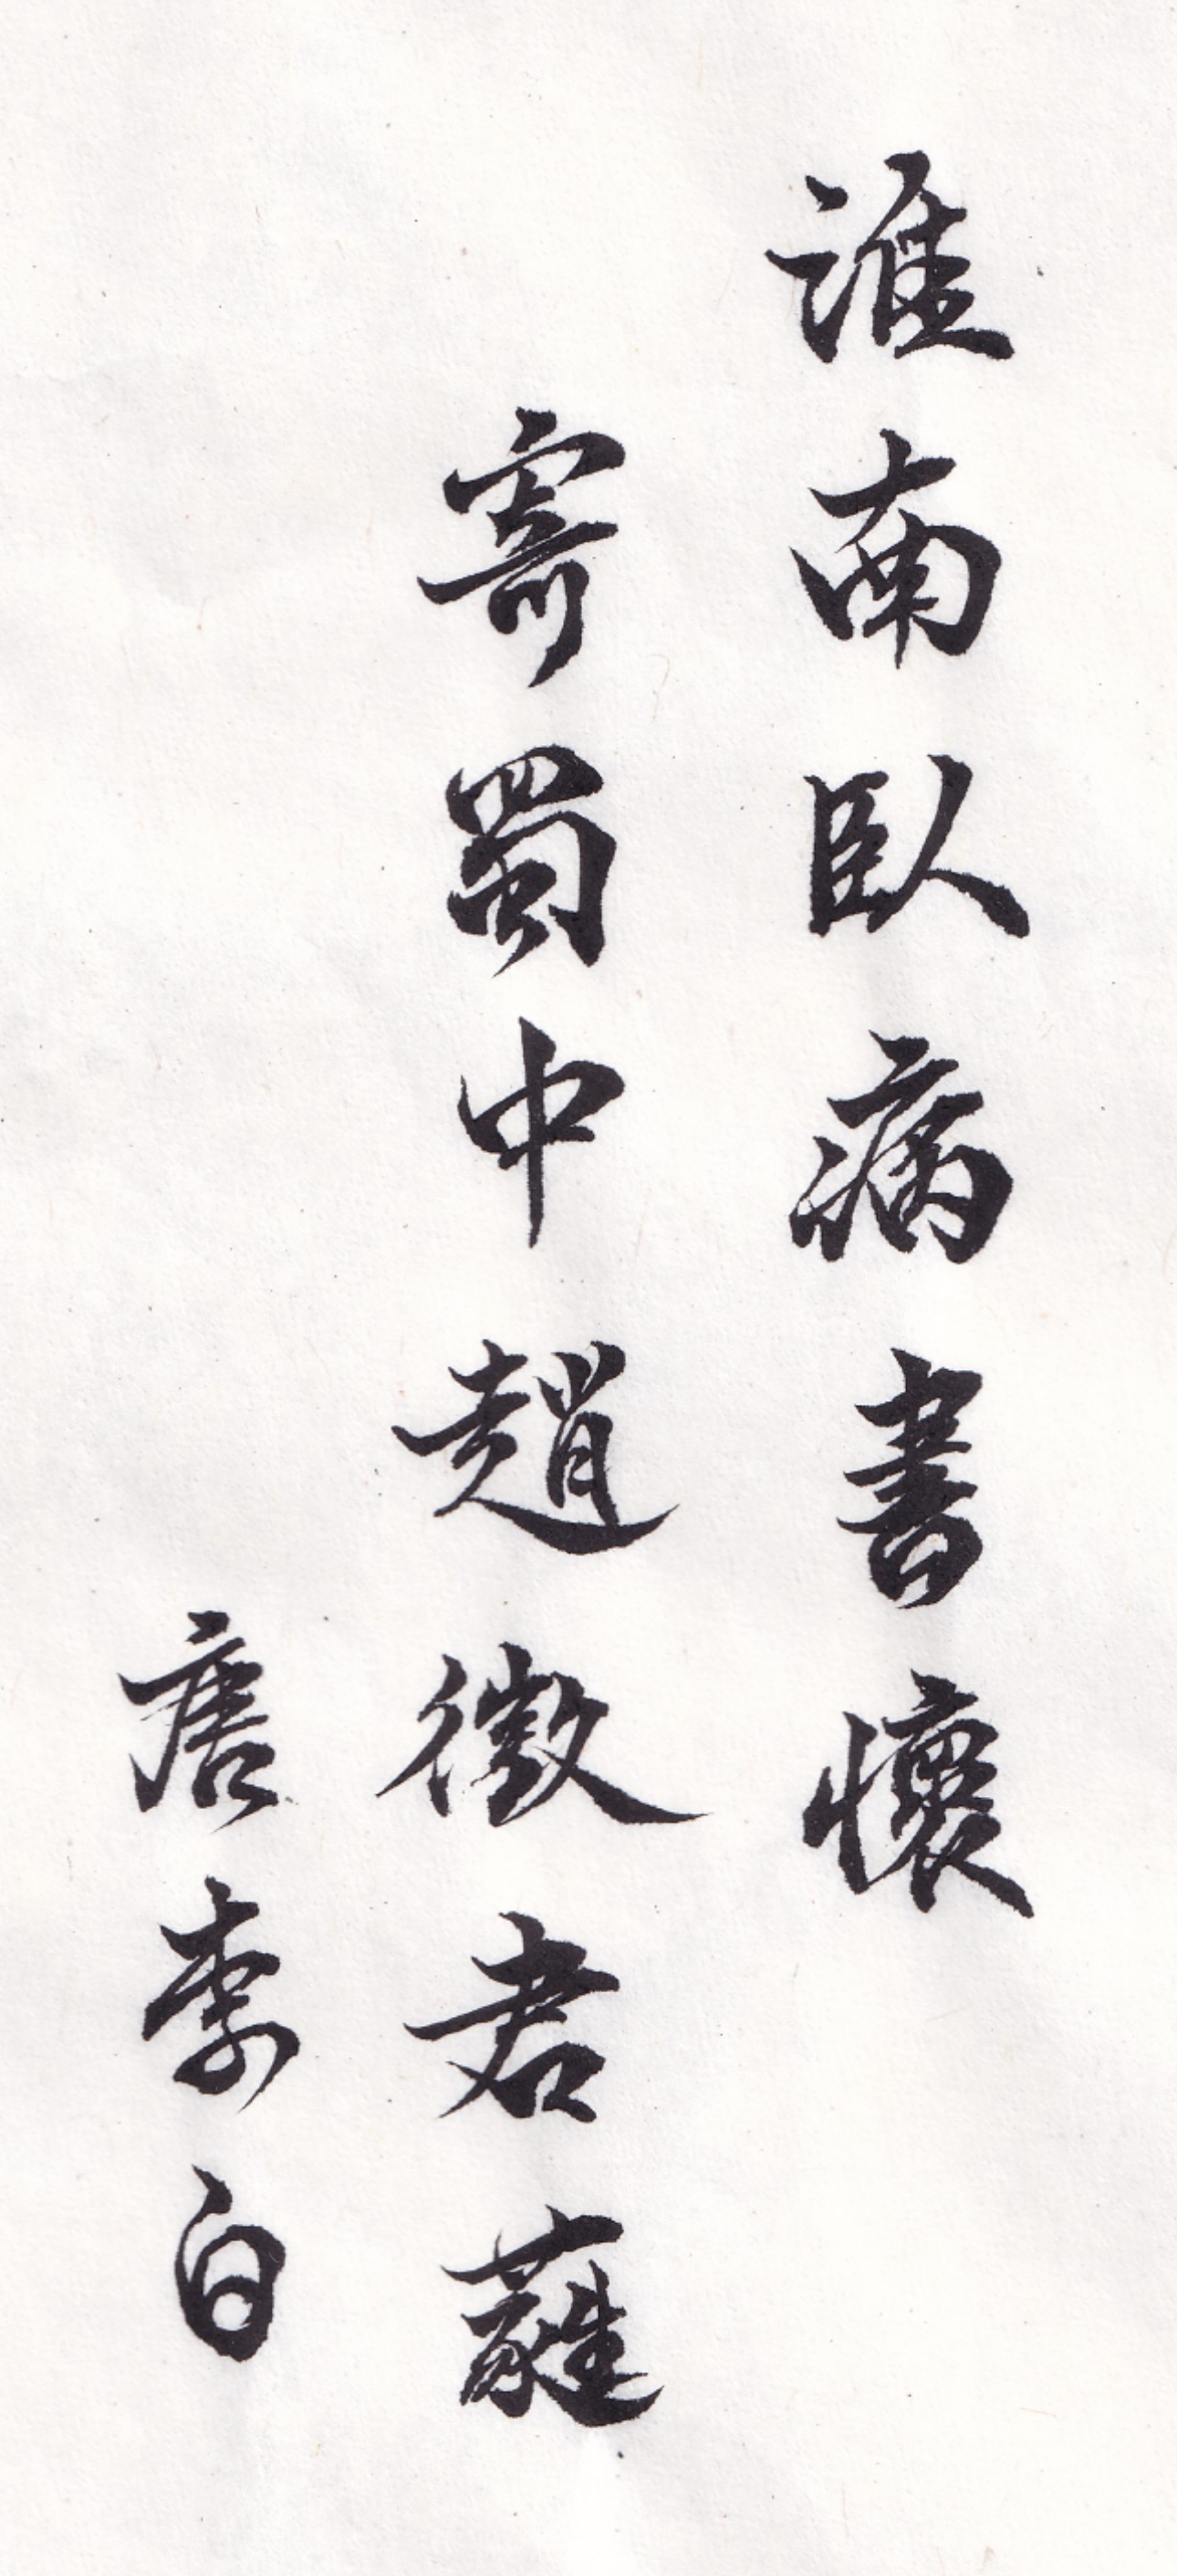 淮南臥病書懷
寄蜀中趙徵君蕤
唐李白